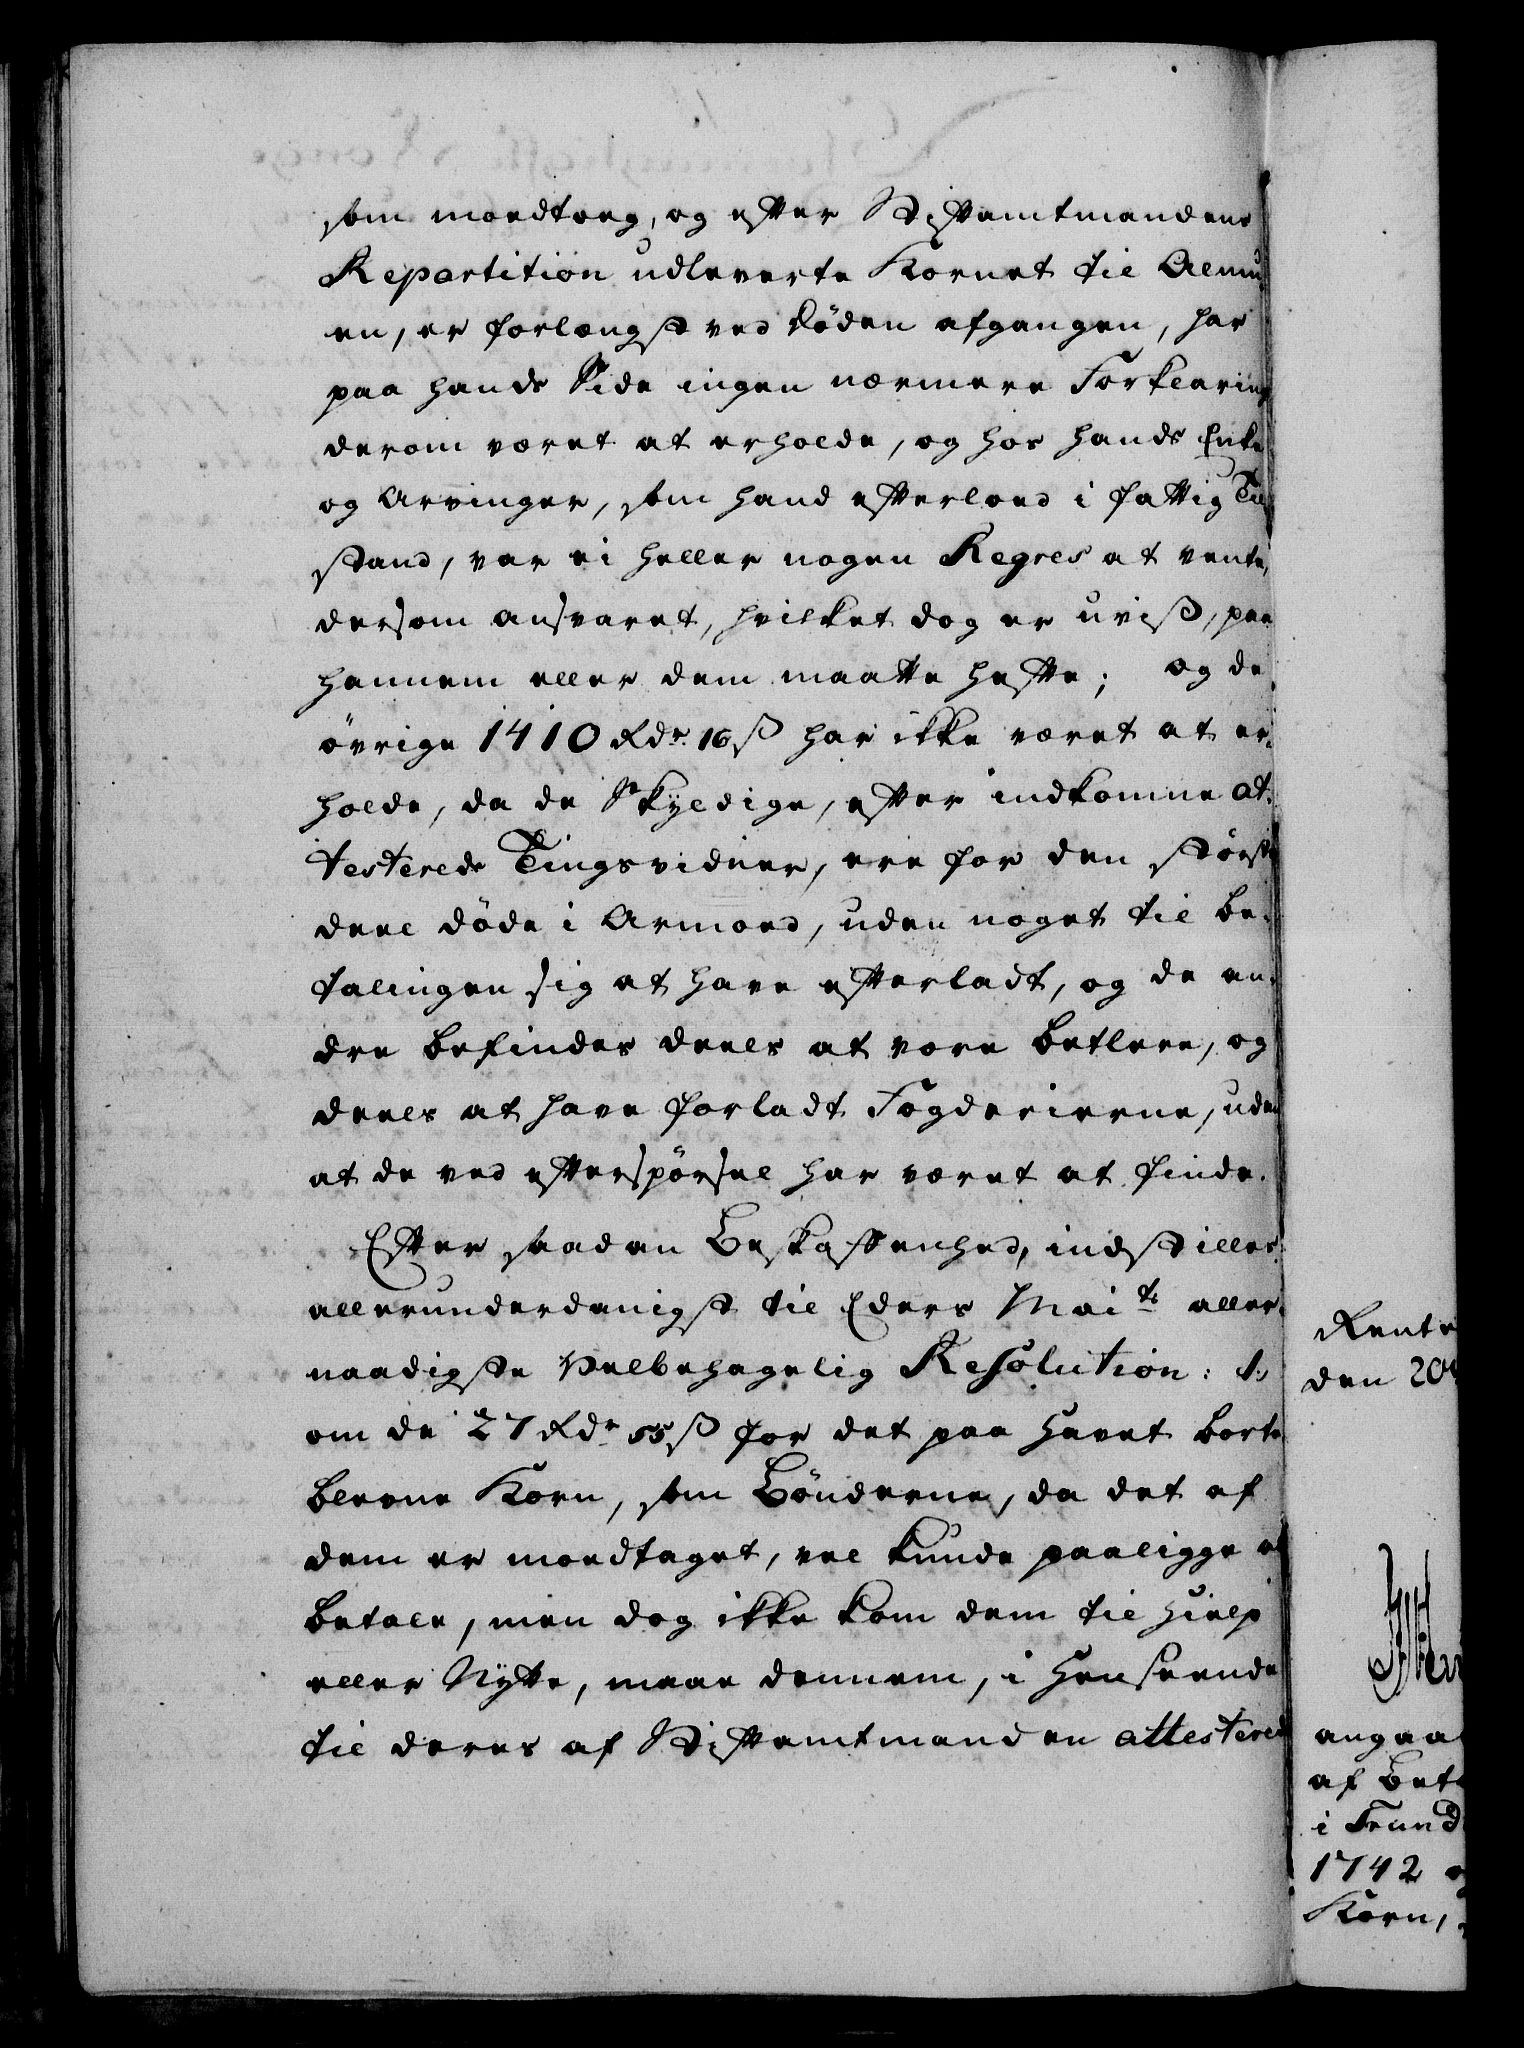 som moedtoeg, og efter Stiftamtmandens
Repartition udleverte Kornet til Almu-
en, er forlængst ved döden afgangen, har
paa hands Side ingen nærmere Forklaring
derom været at erholde, og hos hands Enke
og Arvinger, som hand efterloed i fattig Til-
stand, var ei heller nogen Regres at vente,
dersom ansvaret, hvilket dog er uviß, paa
hannem eller dem maatte hefte; og de
övrige 1410 Rdr. 16 ß har ikke været at er-
holde, da de Skyldige, efter indkomne at-
testerede Tingsvidner, ere for den störste
deel döde i Armoed, uden noget til be-
talingen sig at have efterladt, og de an-
dre befindes deels at være betlere, og
deels at have forladt Fogderierne, uden
at de ved efterspörsel har været at finde.
Efter saadan Beskaffenhed, indstilles
allerunderdanigst til Eders Maits aller-
naadigste Velbehagelig Resolution: 1:
om de 27 Rdr 55 ß for det paa Havet borte
blevne Korn, som Bönderne, da det af
dem er moedtaget, vel kunde paaligge at
betale, men dog ikke kom dem til Hielp
eller Nÿtte, maae dennem, i Henseende
til deres af Stiftamtmanden attesterede
Rente
den 20
angaa
af Beta
i Trund
1742 o
Korn,